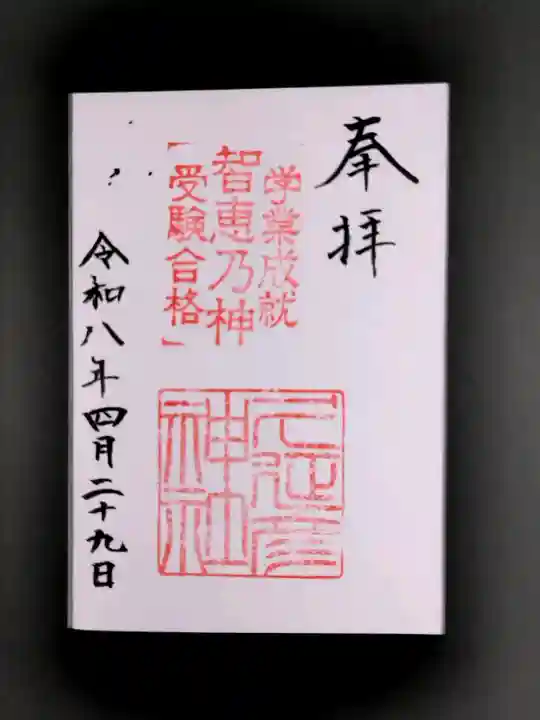 奉拝
学業成就
智恵乃神
「受験合格」
元延彦
神社
令和八年四月二十九日